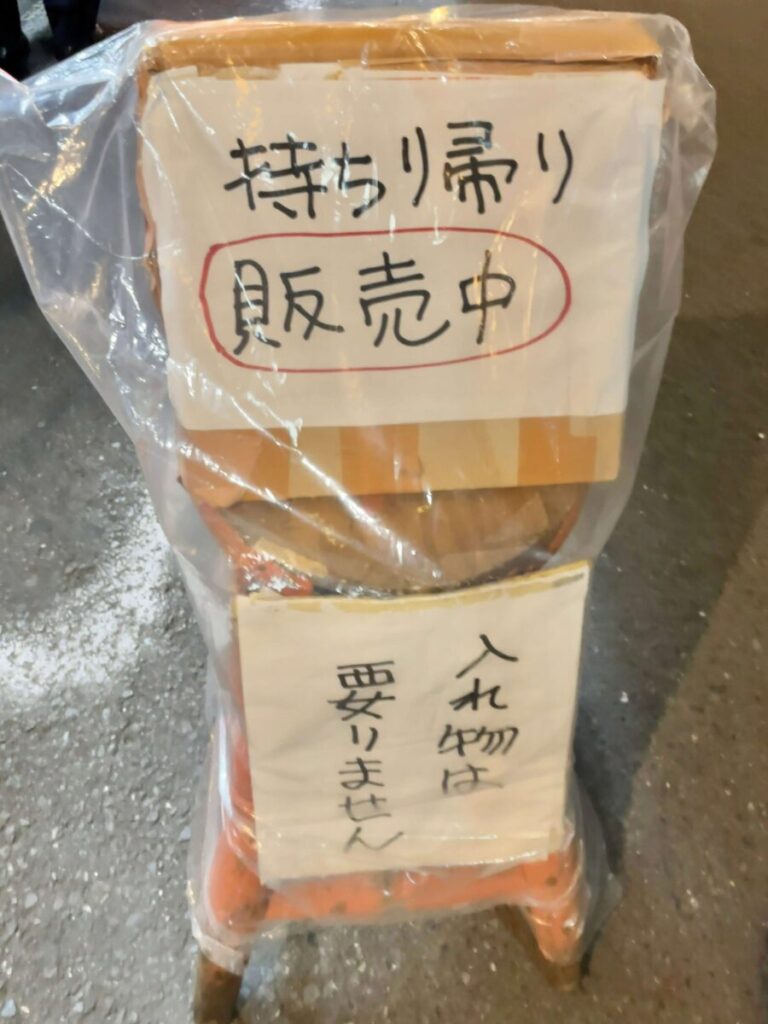 持ち帰り
販売中
入れ物は
要りません